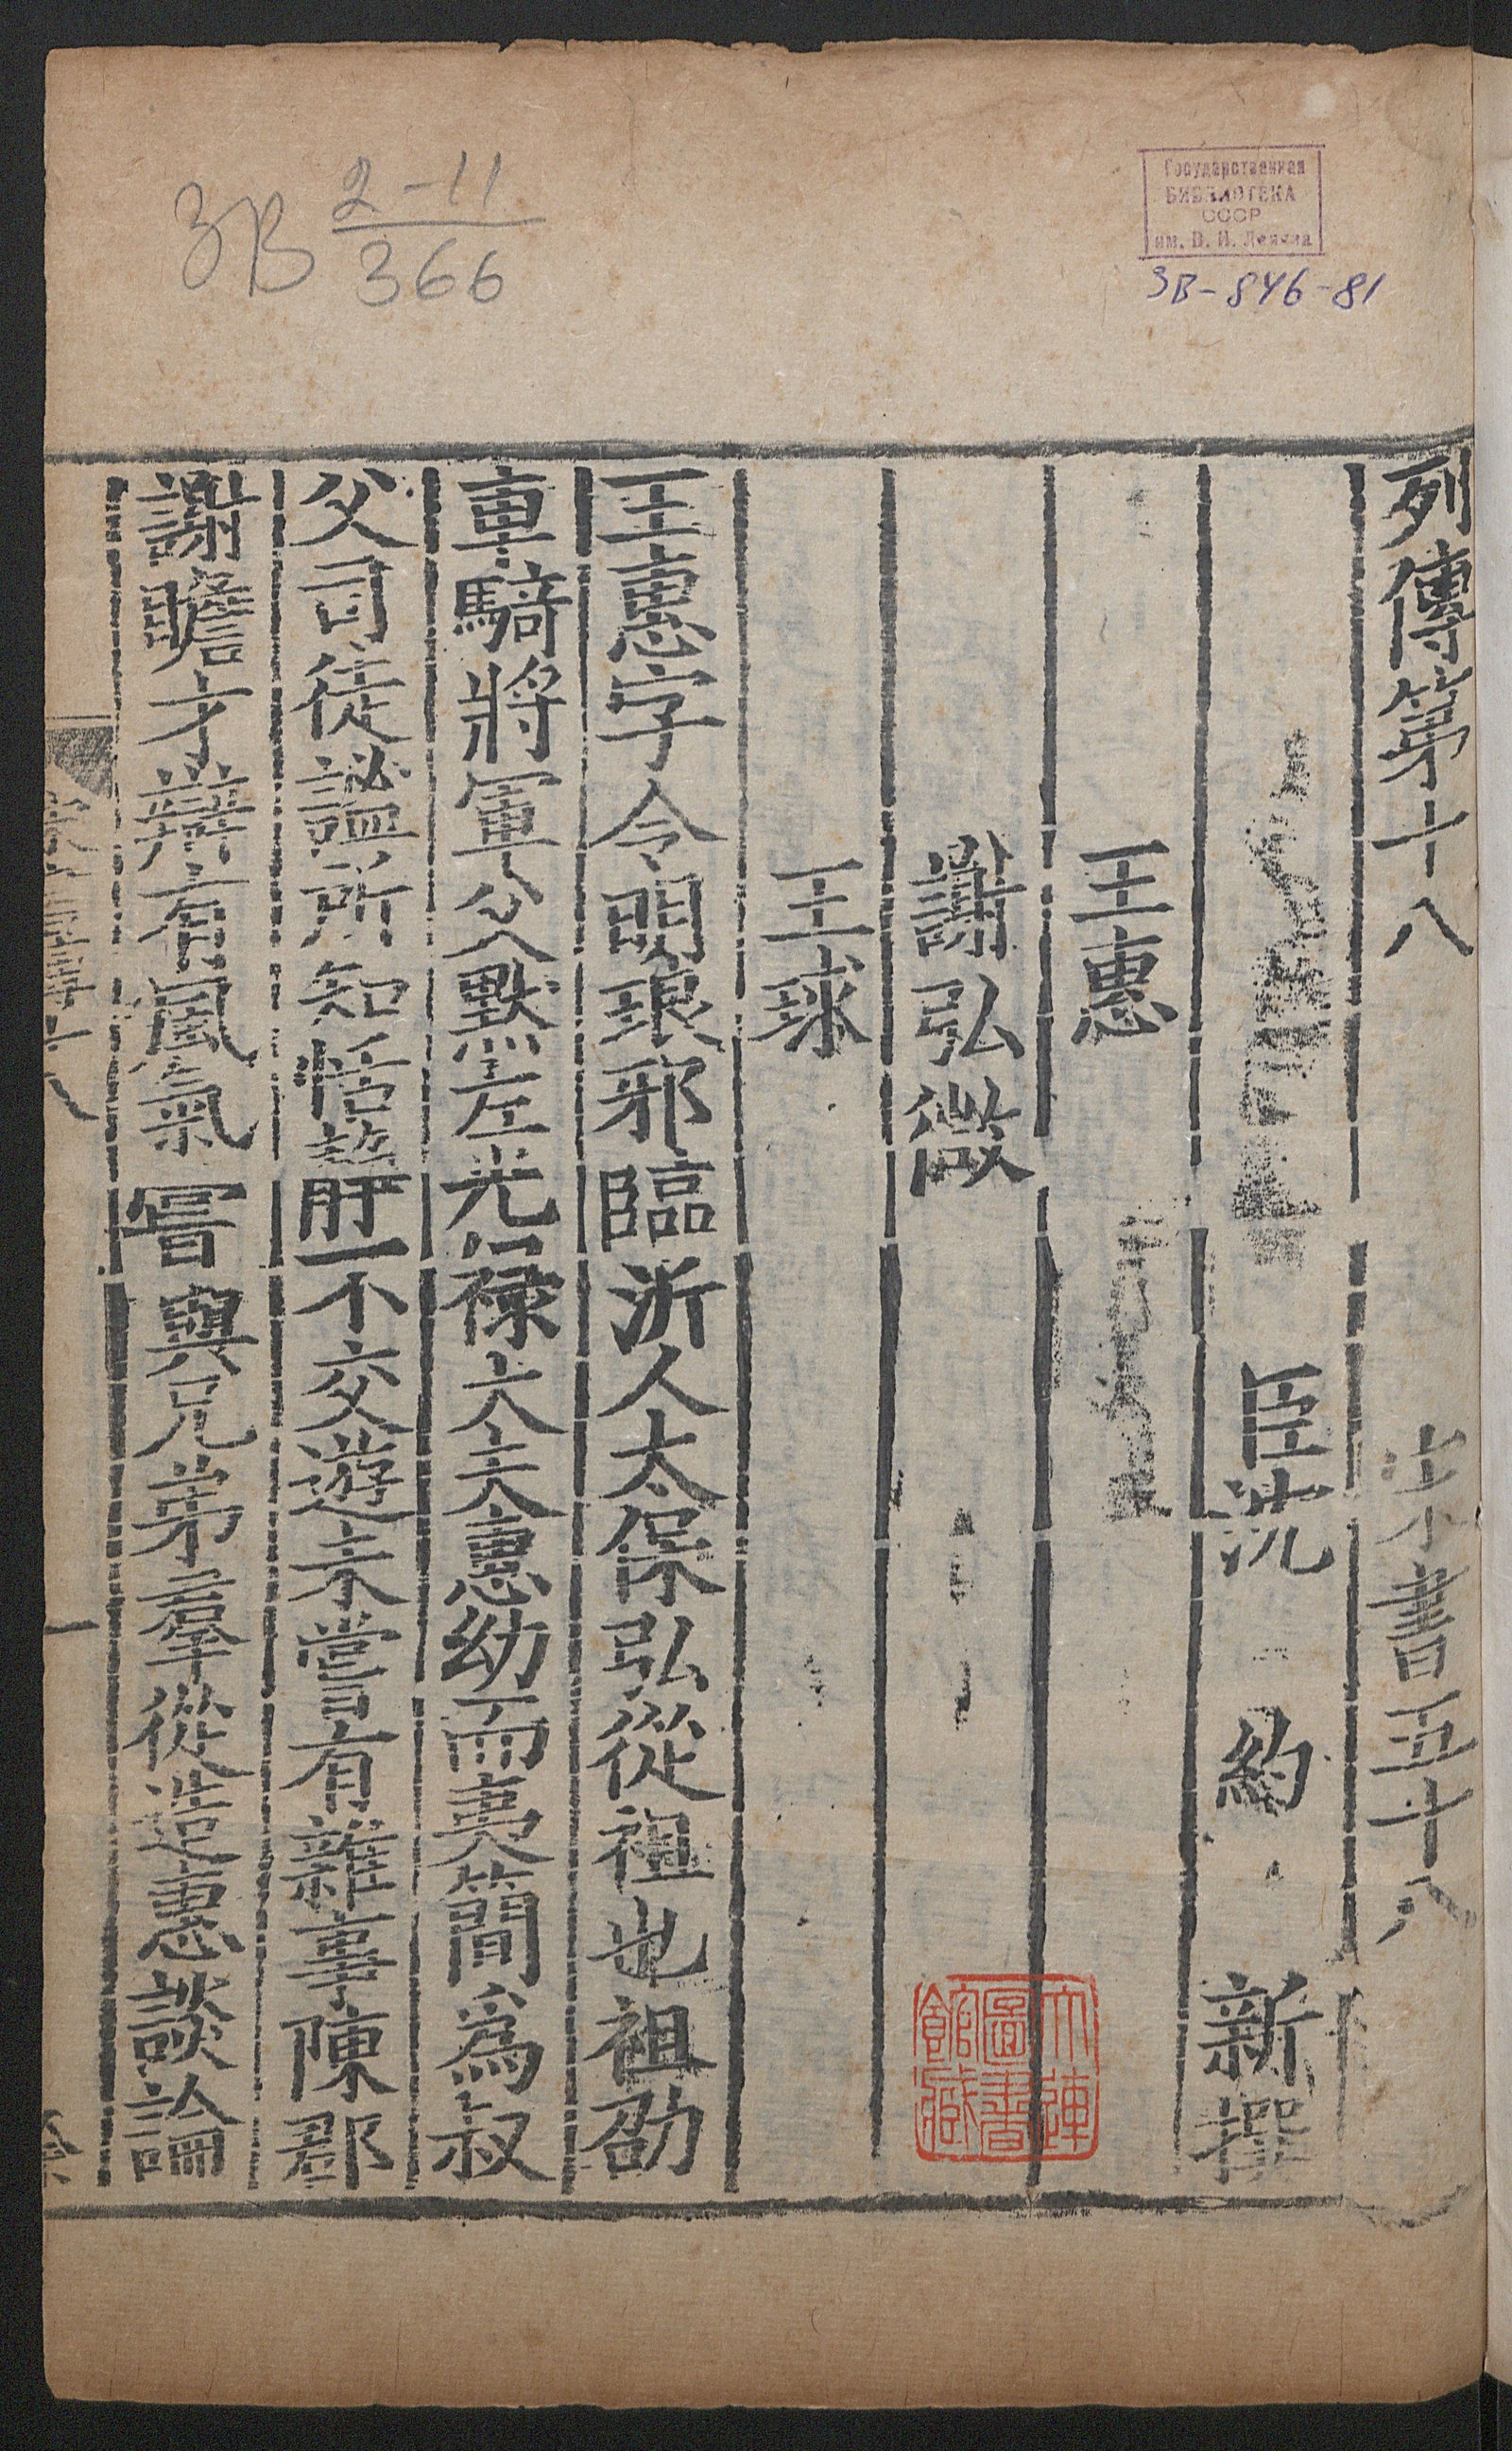 3В 2-11
366
Государственная
БИБЛИОТЕКА
СССР
им. В. И. Ленина
3В-846-81
列傳第十八 宋書五十八
臣沈 約 新撰
王惠
謝弘微
王球
王惠字令明琅邪臨沂人太保弘從祖也祖劭
車騎將軍父默左光禄大夫惠幼而夷簡爲叔
父司徒謐所知恬靜不交遊未嘗有雜事陳郡
謝瞻才辯有風氣甞與兄弟羣從造惠談論
一
大連
圖書
館藏